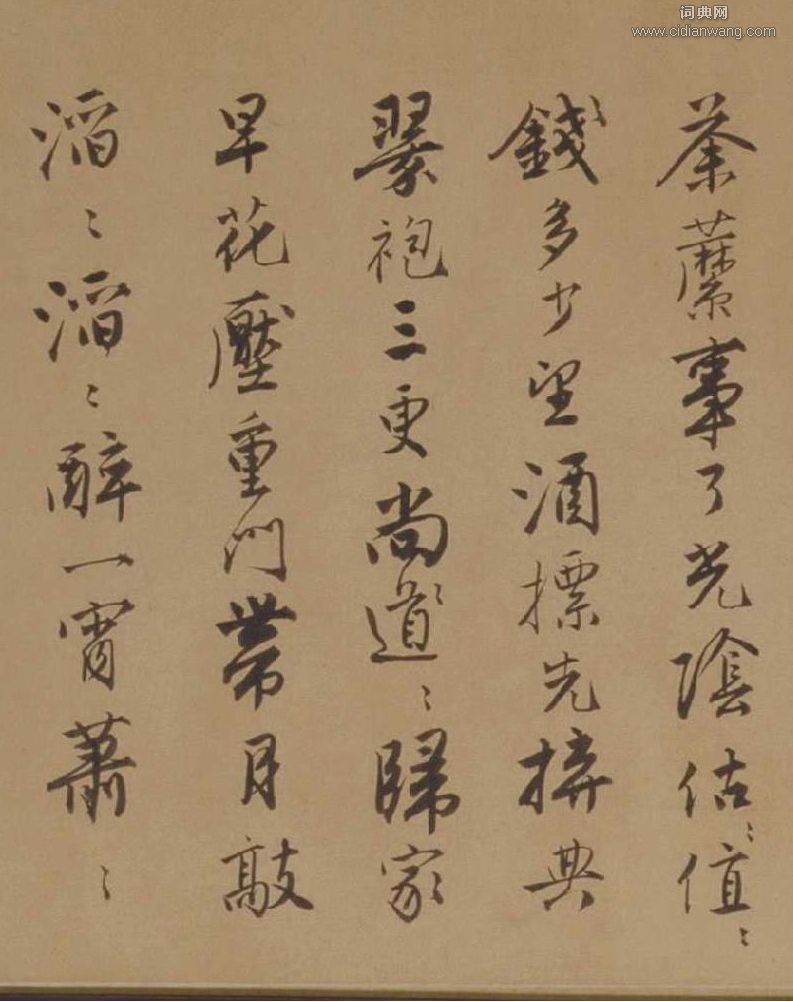 词典网
www.cidianwang.com
荼蘼事了光陰估〻值〻
錢多少望酒摽先拚典
翠袍三更尚道〻歸家
早花壓重門帶月敲
滔〻滔〻醉一宵蕭〻